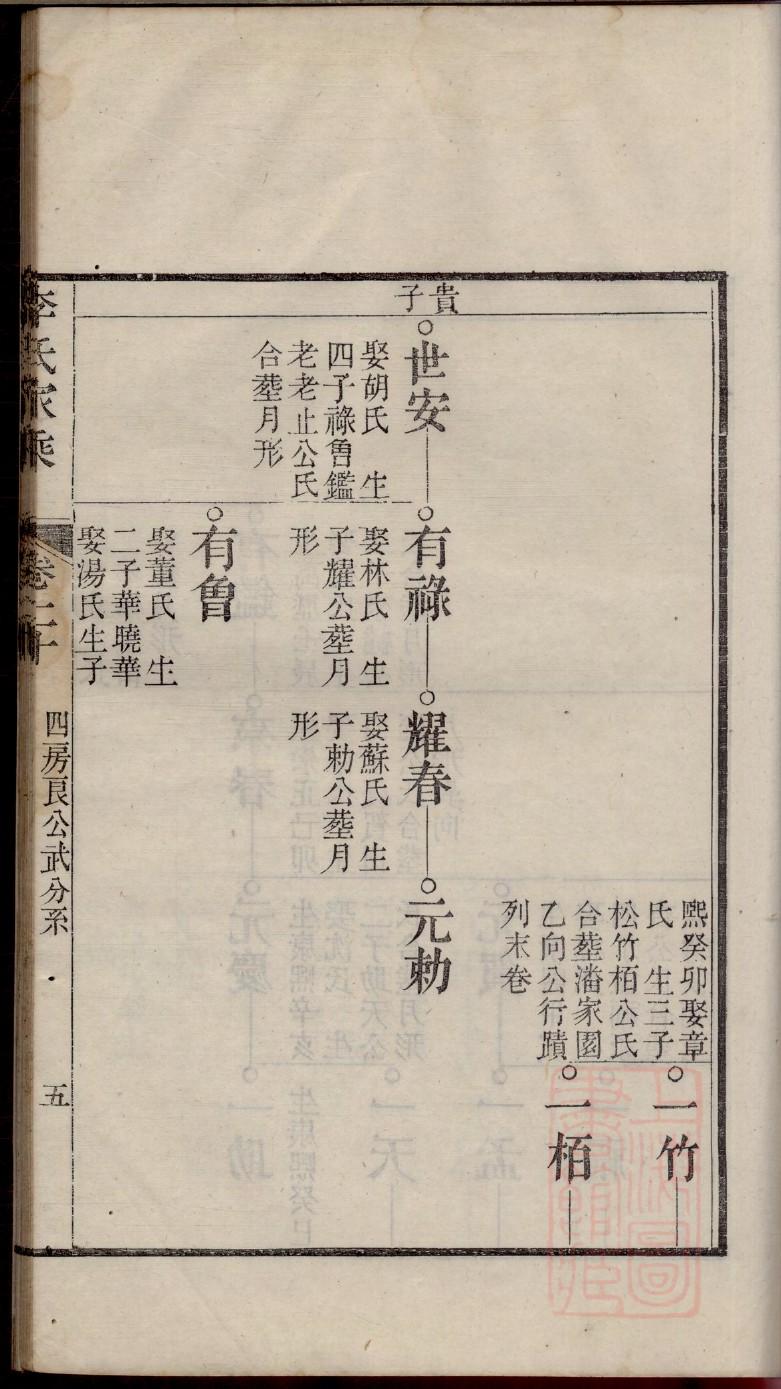 貴子
熙癸卯娶章
氏　生三子
松竹栢公氏
合塟潘家園
乙向公行蹟
列末卷
一竹
一栢
世安
娶胡氏　生
四子祿魯鑑
老老止公氏
合塟月形
有祿
娶林氏　生
子耀公塟月
形
耀春
娶蘇氏　生
子勅公塟月
形
元勅
有魯
娶董氏　生
二子華曉華
娶湯氏生子
李氏家乘
卷二十
四房良公武分系
五